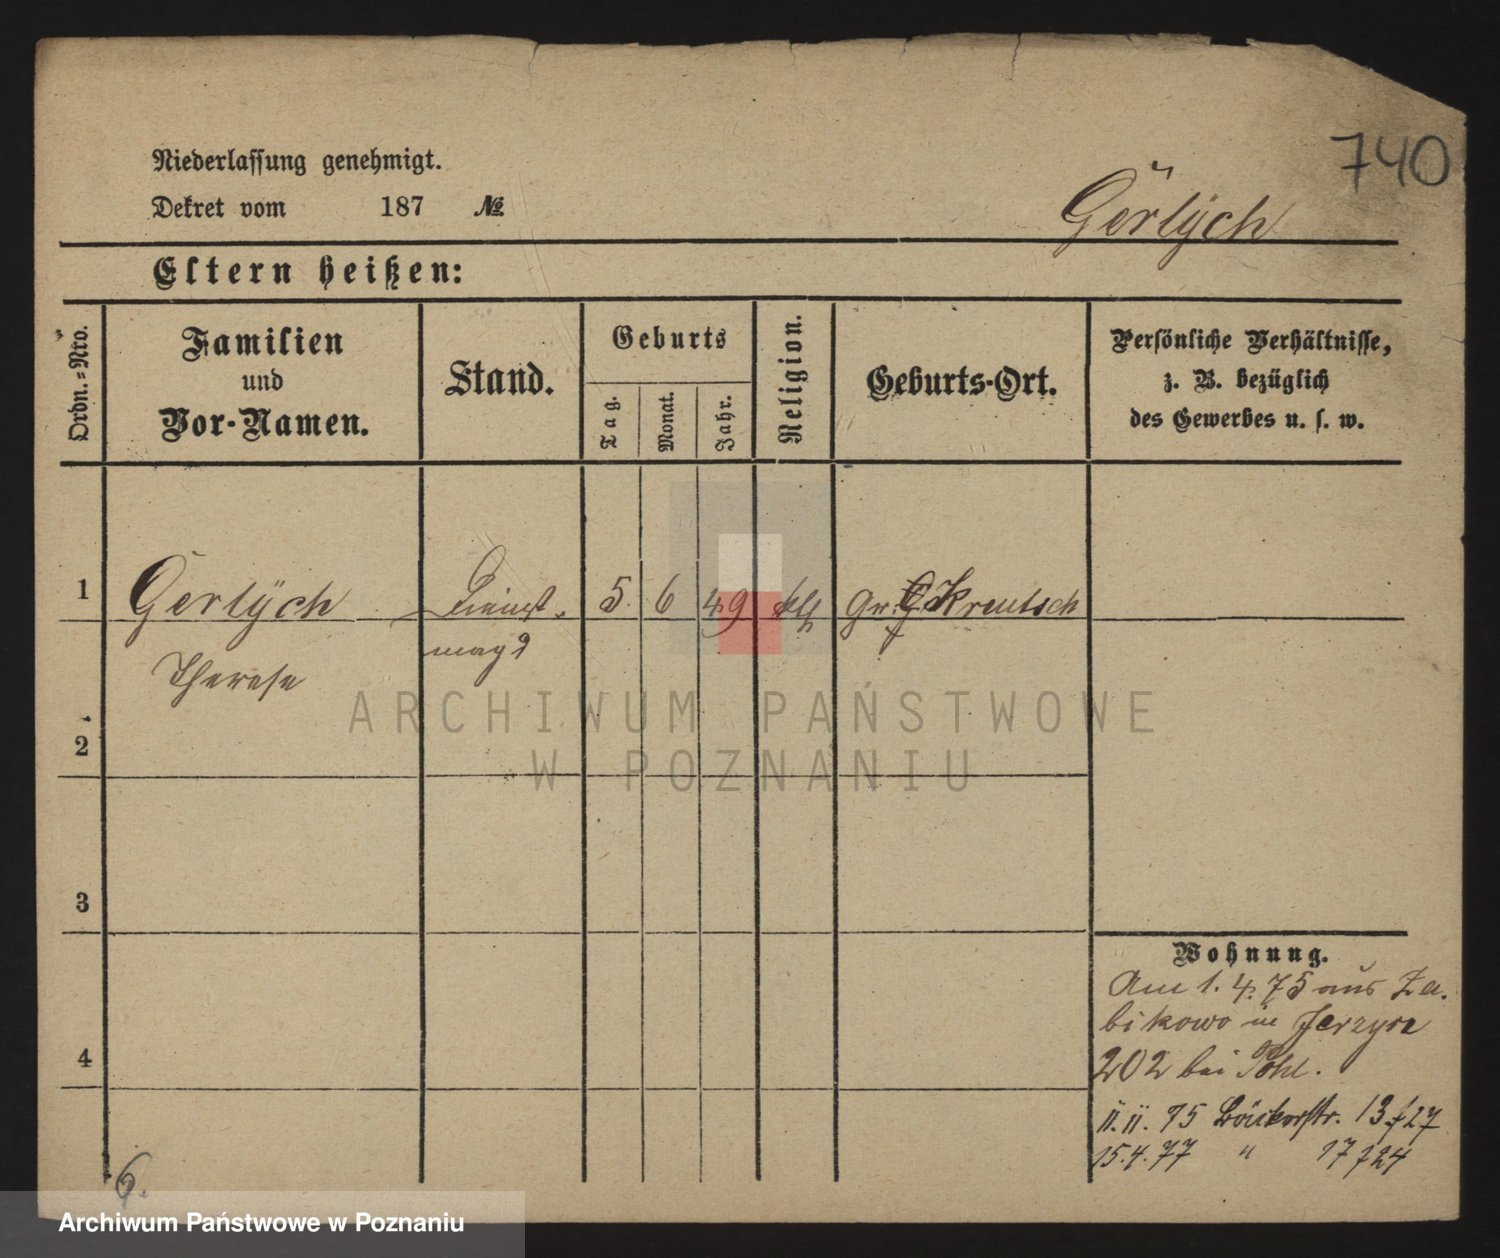 740
Niederlassung genehmigt.
Dekret vom 187 №
Gerlÿch
Eltern heißen:
Ordn.=Nro.
Familien
und
Vor-Namen.
Stand.
Geburts
Tag.
Monat.
Jahr.
Religion.
Geburts-Ort.
Persönliche Verhältnisse,
z. B. bezüglich
des Gewerbes u. s. w.
1 Gerlÿch Dienst- 5 6 49 kth Gr. Kreutsch
magd
Therese
2
3
4
Wohnung.
Am 1. 4. 75 aus Za-
bikowo in Jerzyce
202 bei Pohl.
11. 11. 75 Bäckerstr. 13
15. 4. 77 " 17
6.
ARCHIWUM PAŃSTWOWE
W POZNANIU
Archiwum Państwowe w Poznaniu